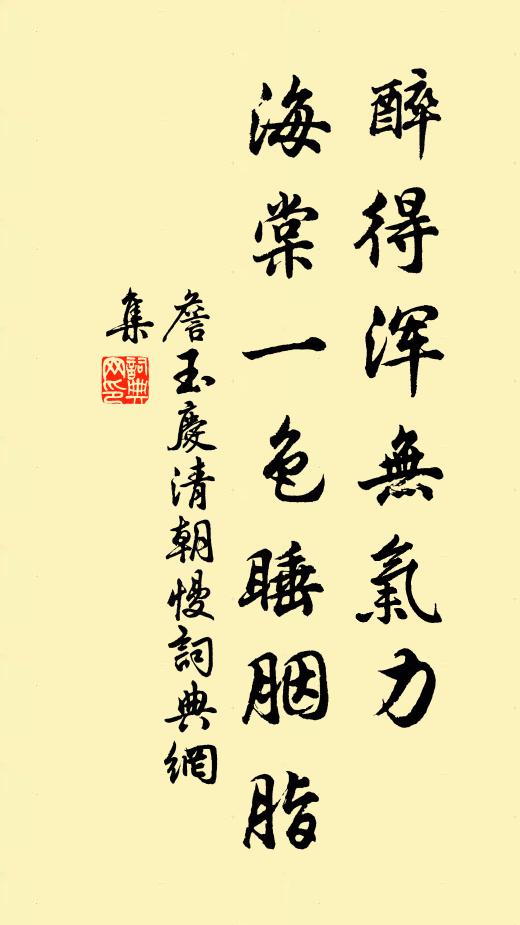 醉得渾無氣力
海棠一色睡胭脂
詹玉慶清朝慢詞典網
集
詞典
网印